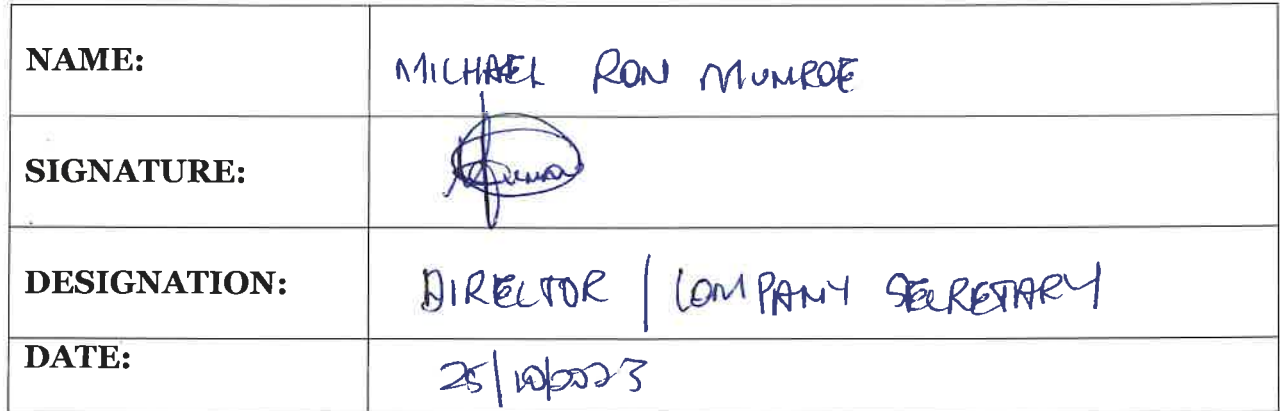 NAME: MICHAEL RON MUNROE
SIGNATURE:
DESIGNATION: DIRECTOR / COMPANY SECRETARY
DATE: 25/10/2023